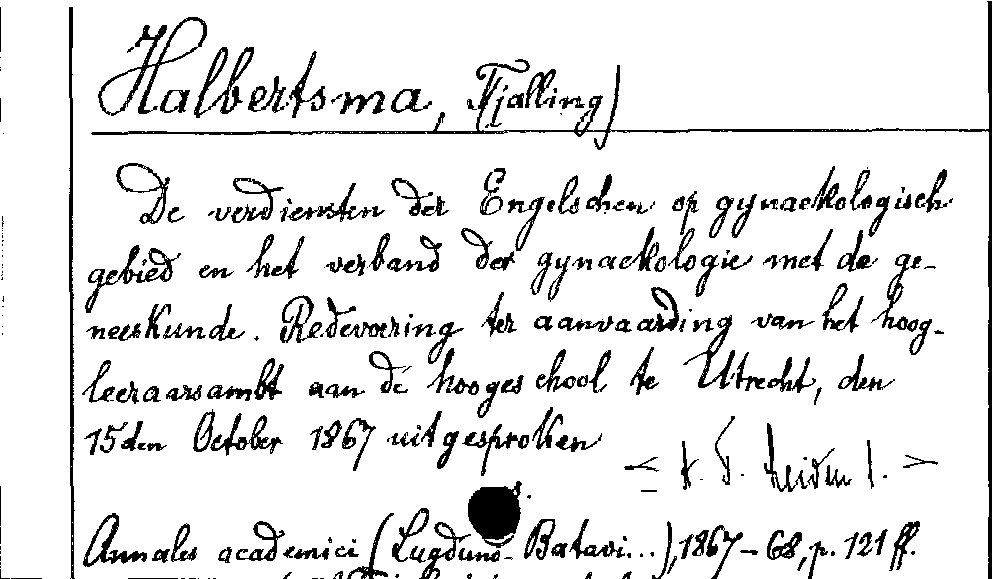 Halbertsma, Tjalling)
De verdiensten der Engelschen op gynaekologisch
gebied en het verband der gynaekologie met de ge-
neeskunde. Redevoering ter aanvaarding van het hoog-
leeraarsambt aan de hoogeschool te Utrecht, den
15den October 1867 uitgesproken
s.
Annales academici (Lugduno-Batavi...), 1867-68, p. 121 ff.